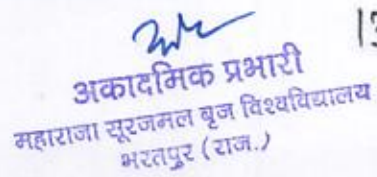 13
अकादमिक प्रभारी
महाराजा सूरजमल बृज विश्वविद्यालय
भरतपुर (राज.)